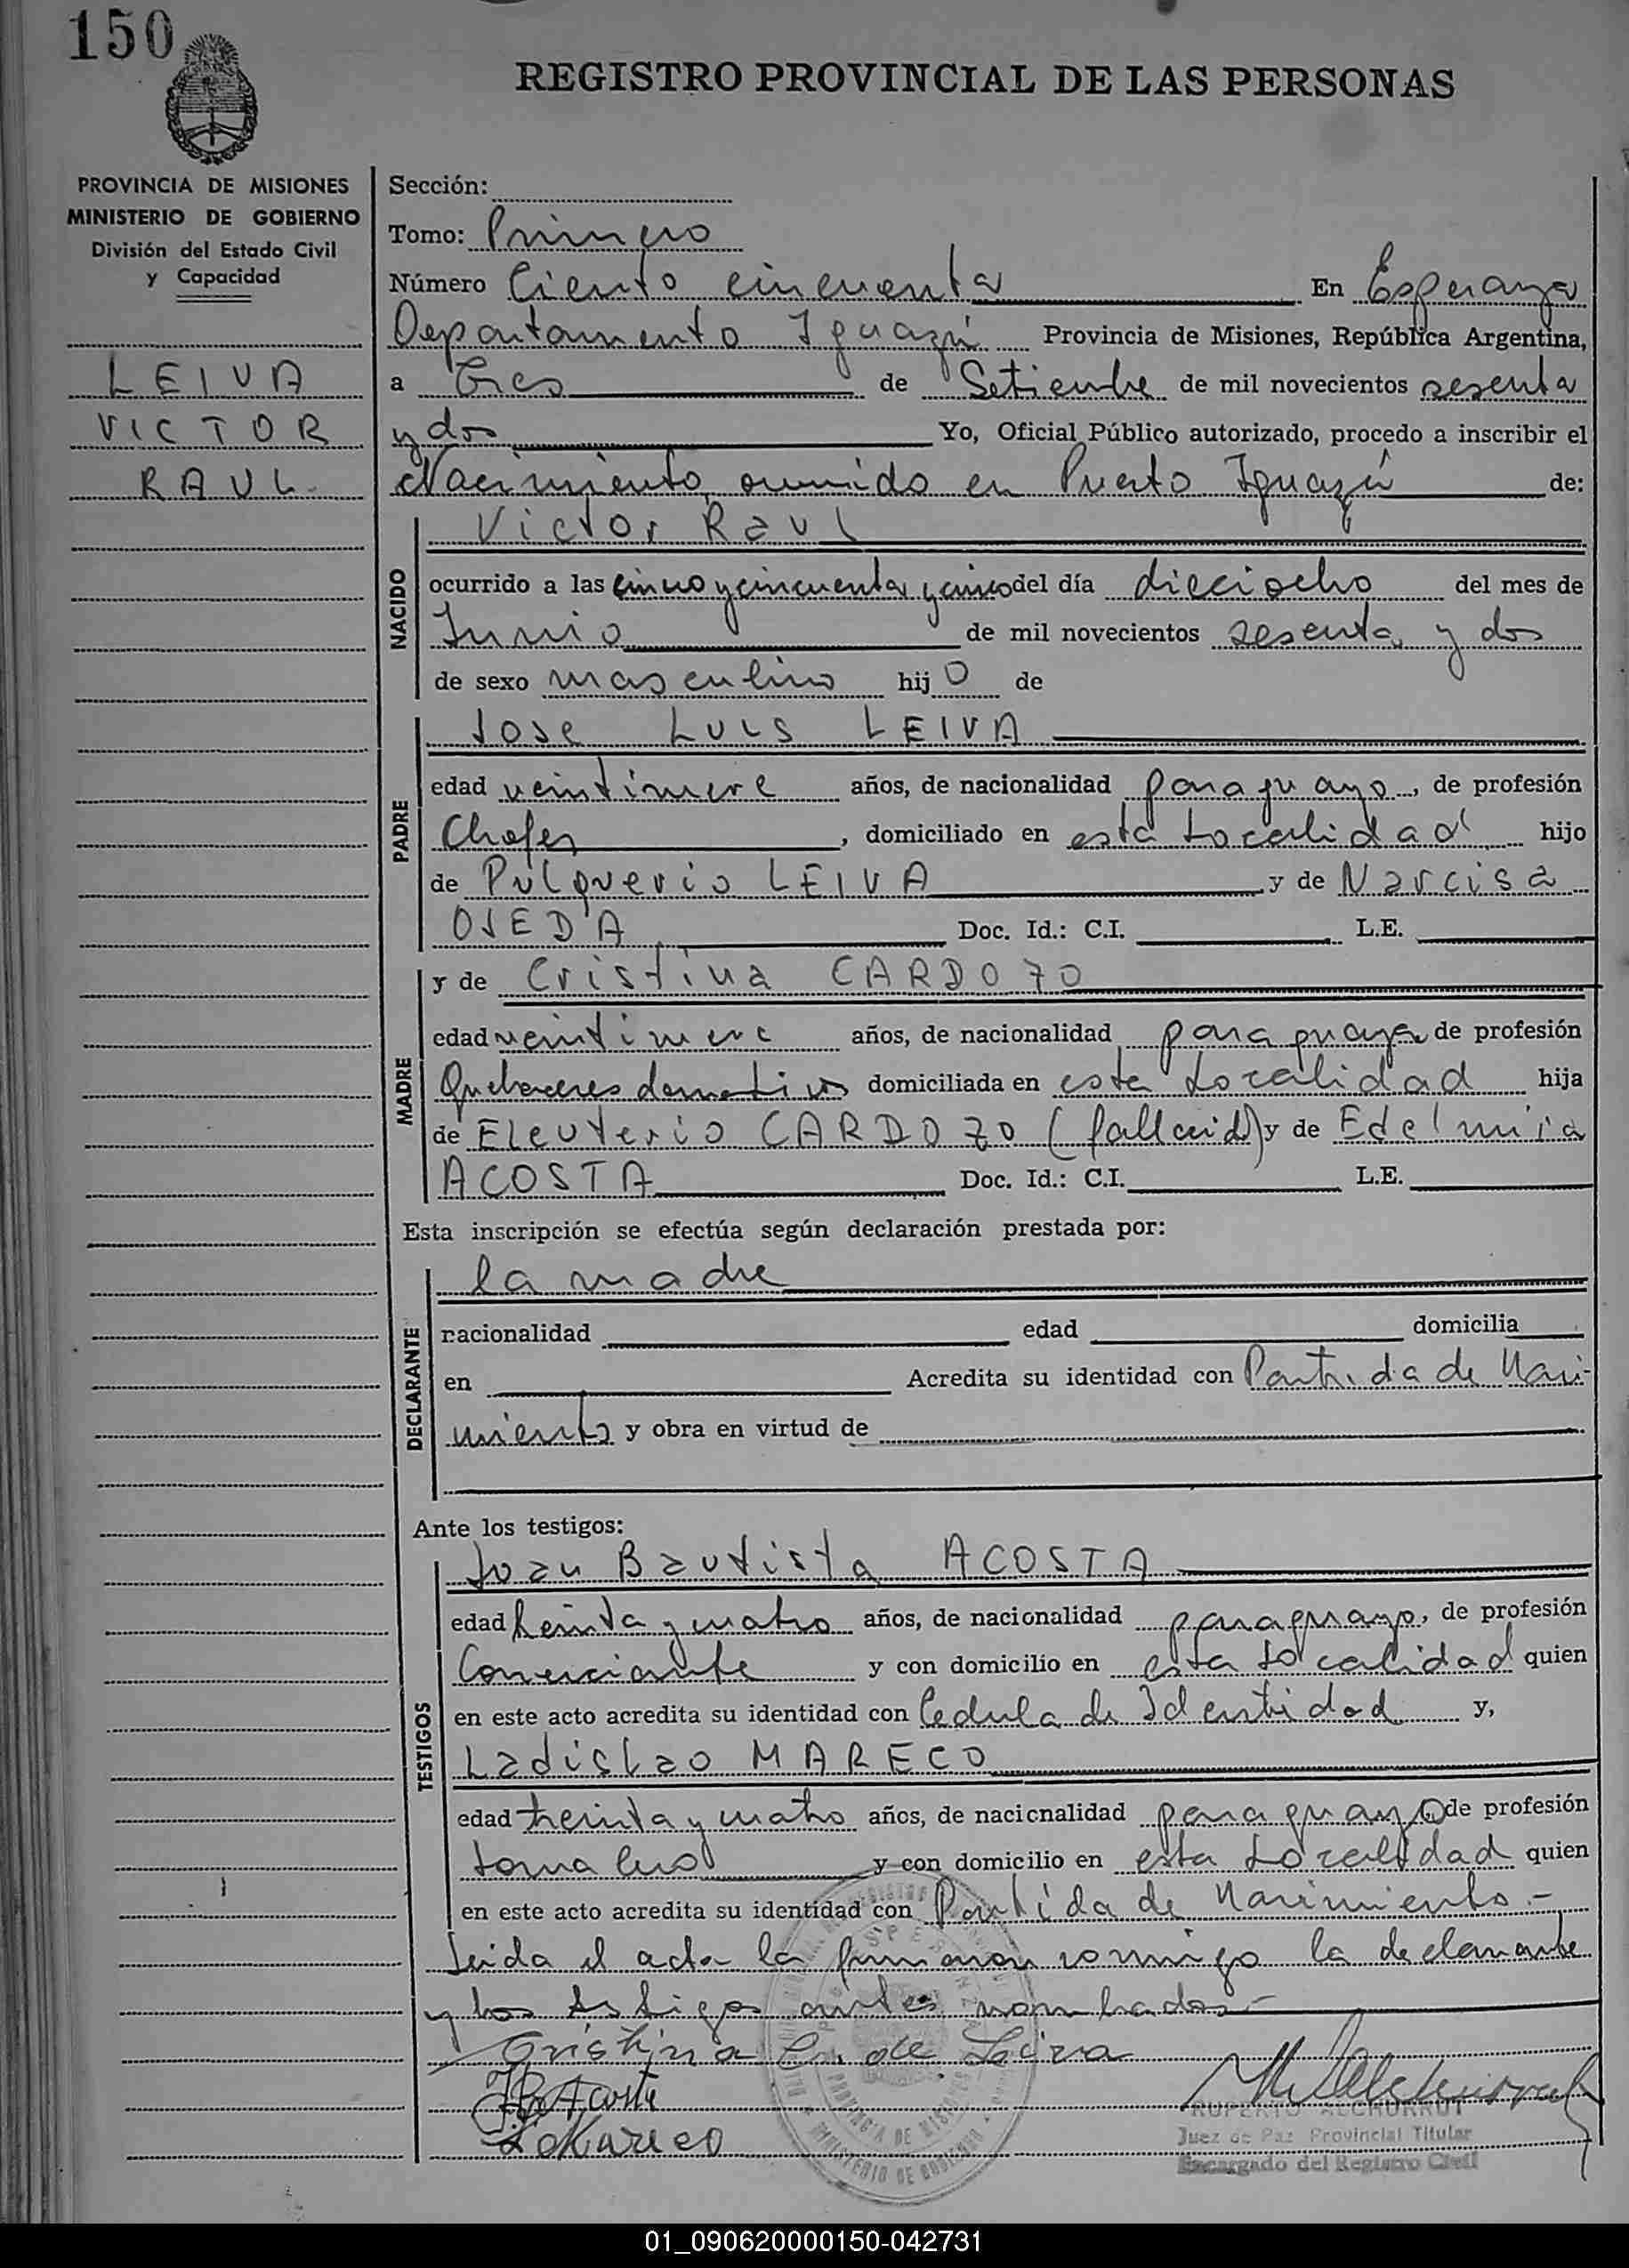 150
REGISTRO PROVINCIAL DE LAS PERSONAS
PROVINCIA DE MISIONES
MINISTERIO DE GOBIERNO
División del Estado Civil
y Capacidad
LEIVA
VICTOR
RAUL
Sección:
Tomo: Primero
Número Ciento cincuenta En Esperanza
Departamento Iguazú Provincia de Misiones, República Argentina,
a Tres de Setiembre de mil novecientos sesenta
y dos Yo, Oficial Público autorizado, procedo a inscribir el
Nacimiento ocurrido en Puerto Iguazú de:
NACIDO
Victor Raul
ocurrido a las cinco y cincuenta y cinco del día dieciocho del mes de
Junio de mil novecientos sesenta y dos
de sexo masculino hijo de
PADRE
Jose Luis LEIVA
edad veintinueve años, de nacionalidad paraguayo, de profesión
Chofer, domiciliado en esta Localidad hijo
de Pulquerio LEIVA y de Narcisa
OJEDA Doc. Id.: C.I. L.E.
MADRE
y de Cristina CARDOZO
edad veintinueve años, de nacionalidad paraguaya de profesión
Quehaceres domesticos domiciliada en esta Localidad hija
de Eleuterio CARDOZO (fallecido) y de Edelmira
ACOSTA Doc. Id.: C.I. L.E.
Esta inscripción se efectúa según declaración prestada por:
DECLARANTE
la madre
nacionalidad edad domicilia
en Acredita su identidad con Partida de Naci-
miento y obra en virtud de
Ante los testigos:
TESTIGOS
Juan Bautista ACOSTA
edad treinta y cuatro años, de nacionalidad paraguayo, de profesión
Comerciante y con domicilio en esta Localidad quien
en este acto acredita su identidad con Cedula de Identidad y,
Ladislao MARECO
edad treinta y cuatro años, de nacionalidad paraguayo de profesión
Jornalero y con domicilio en esta Localidad quien
en este acto acredita su identidad con Partida de Nacimiento.-
Leida el acta la firmaron conmigo la declarante
y los testigos antes nombrados-
Cristina C. de Leiva
JBAcosta
L Mareco
RUPERTO ALCHURRUT
Juez de Paz Provincial Titular
Encargado del Registro Civil
PROVINCIA DE MISIONES
MINISTERIO DE GOBIERNO
01_090620000150-042731